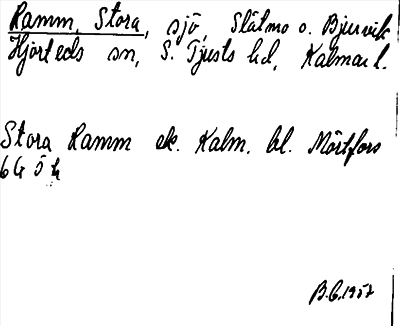 Ramm, Stora, sjö, Slätmo o. Bjurvik
Hjorteds sn, S. Tjusts hd, Kalmar l.
Stora Ramm ek. Kalm. bl. Mörtfors
6G ö h
B.G. 1957